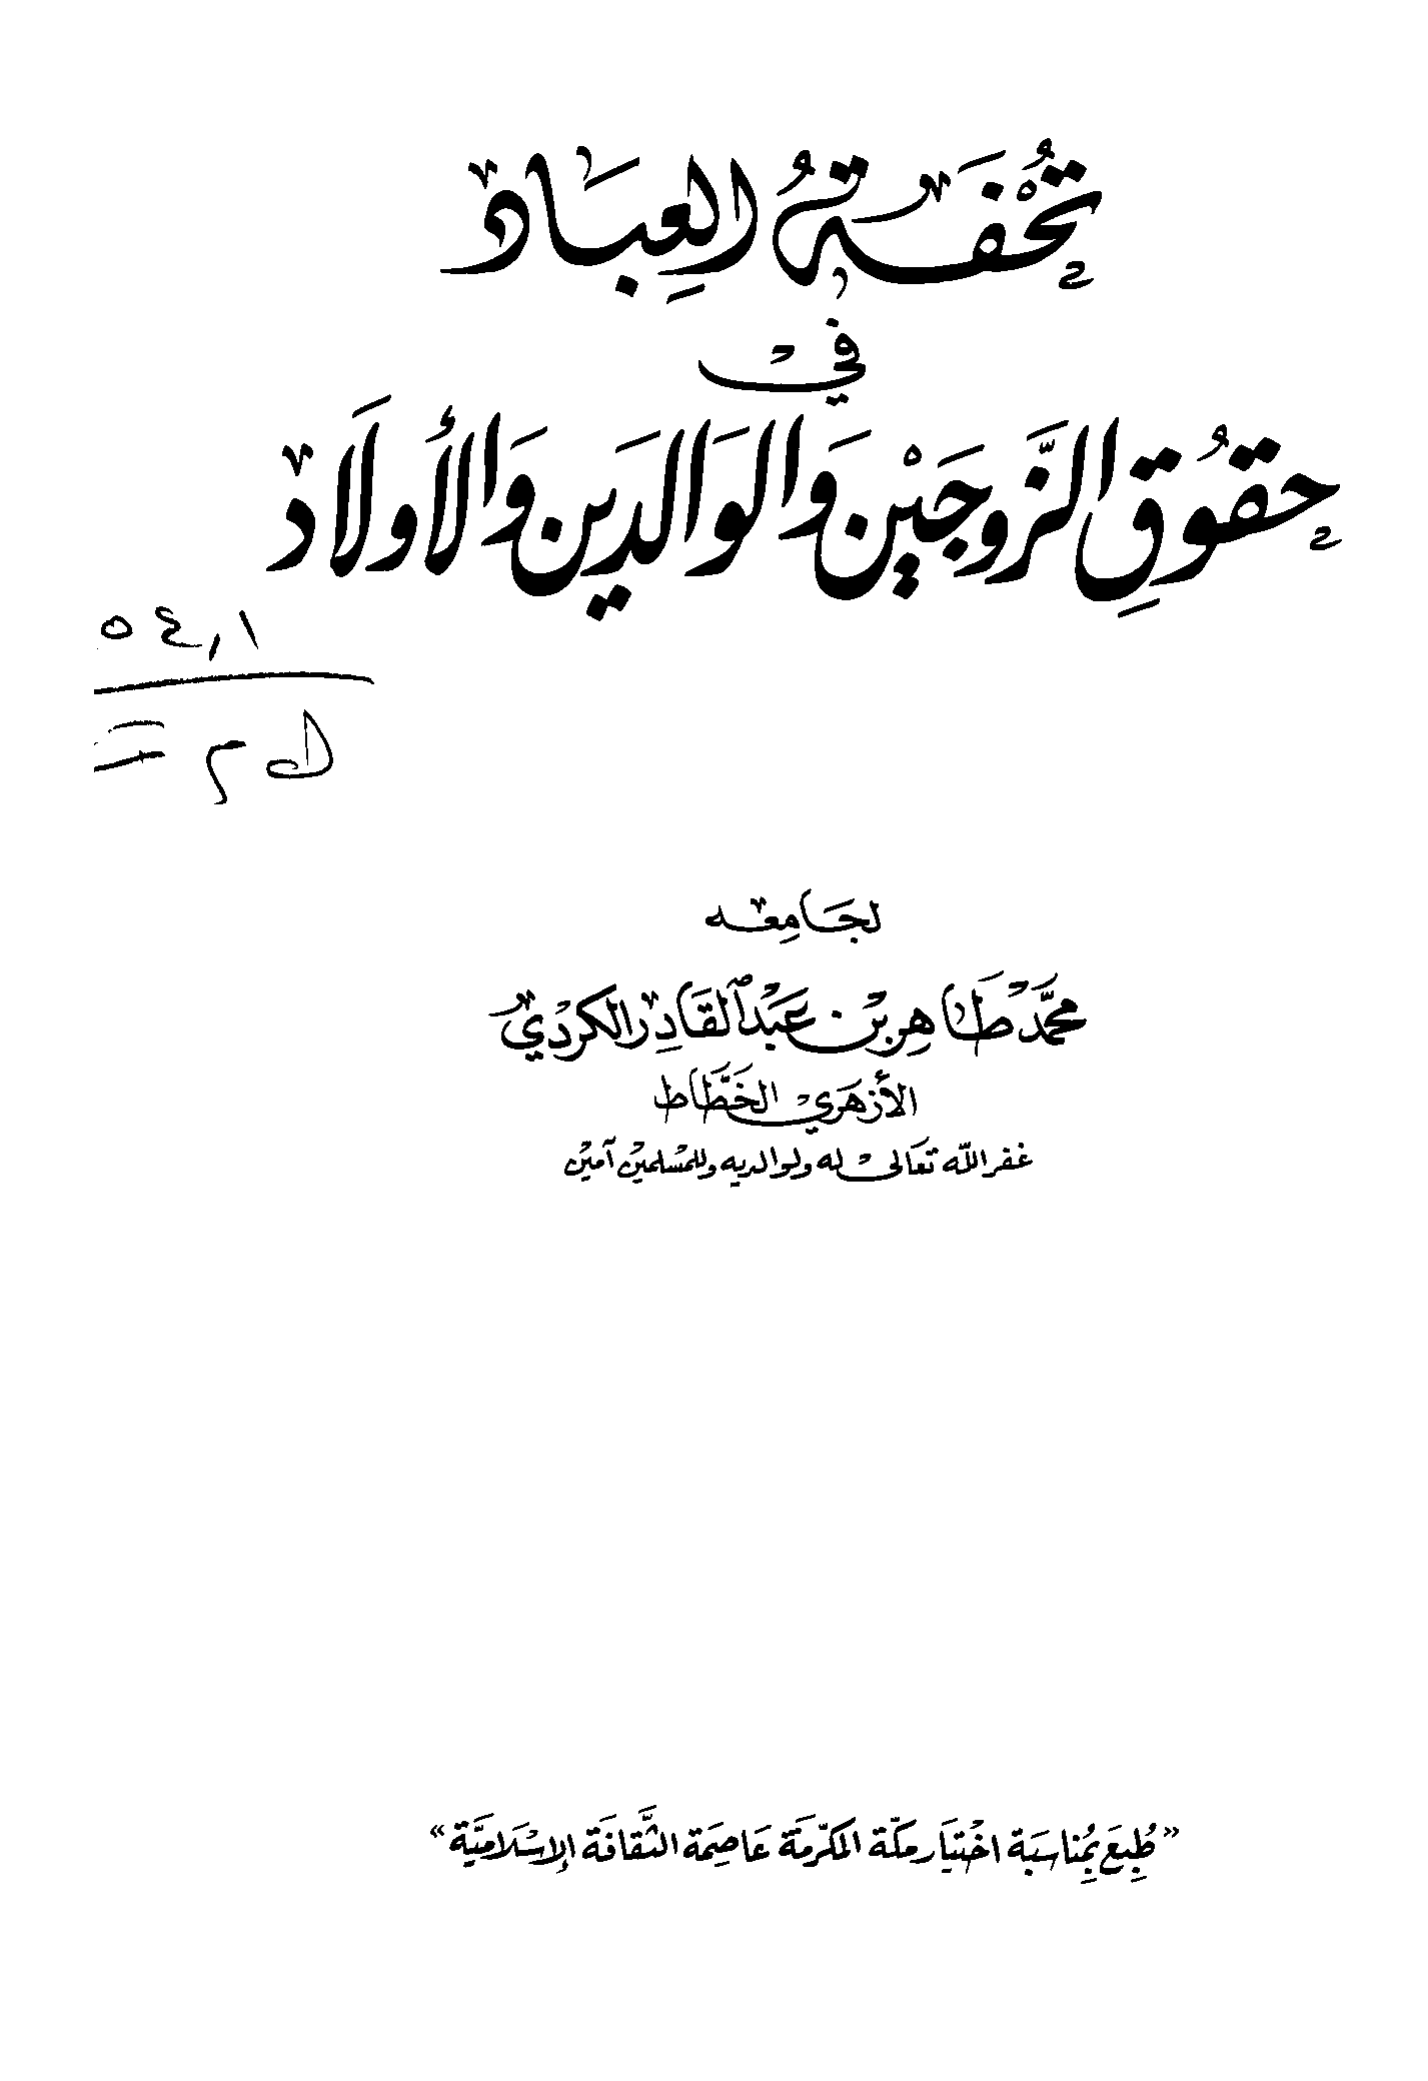 تُحْفَةُ العِبَاد
في
حقُوقِ الزَّوجَيْن وَالوَالدَين وَالأَولَاد
٥٤,١
ك م
لجَامِعه
محمَّد طَاهِر بن عَبْد القَادِر الكردْي
الأزهَري الخَطَّاط
غفر الله تعَالى له ولوالديه وللمسْلميْن آميْن
«طُبِعَ بمُناسَبَة اخْتيَار مكّة المكرّمَة عَاصِمَة الثَّقافَة الإسْلَاميَّة»